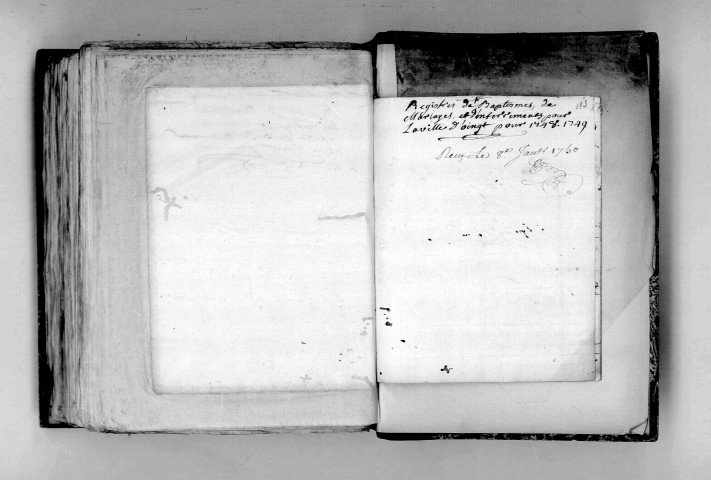 Registres de Baptismes, de
Mariages, et d'enterrements, pour
La ville d'oingt pour 1748. 1749
Reçu le 8e Janv 1750